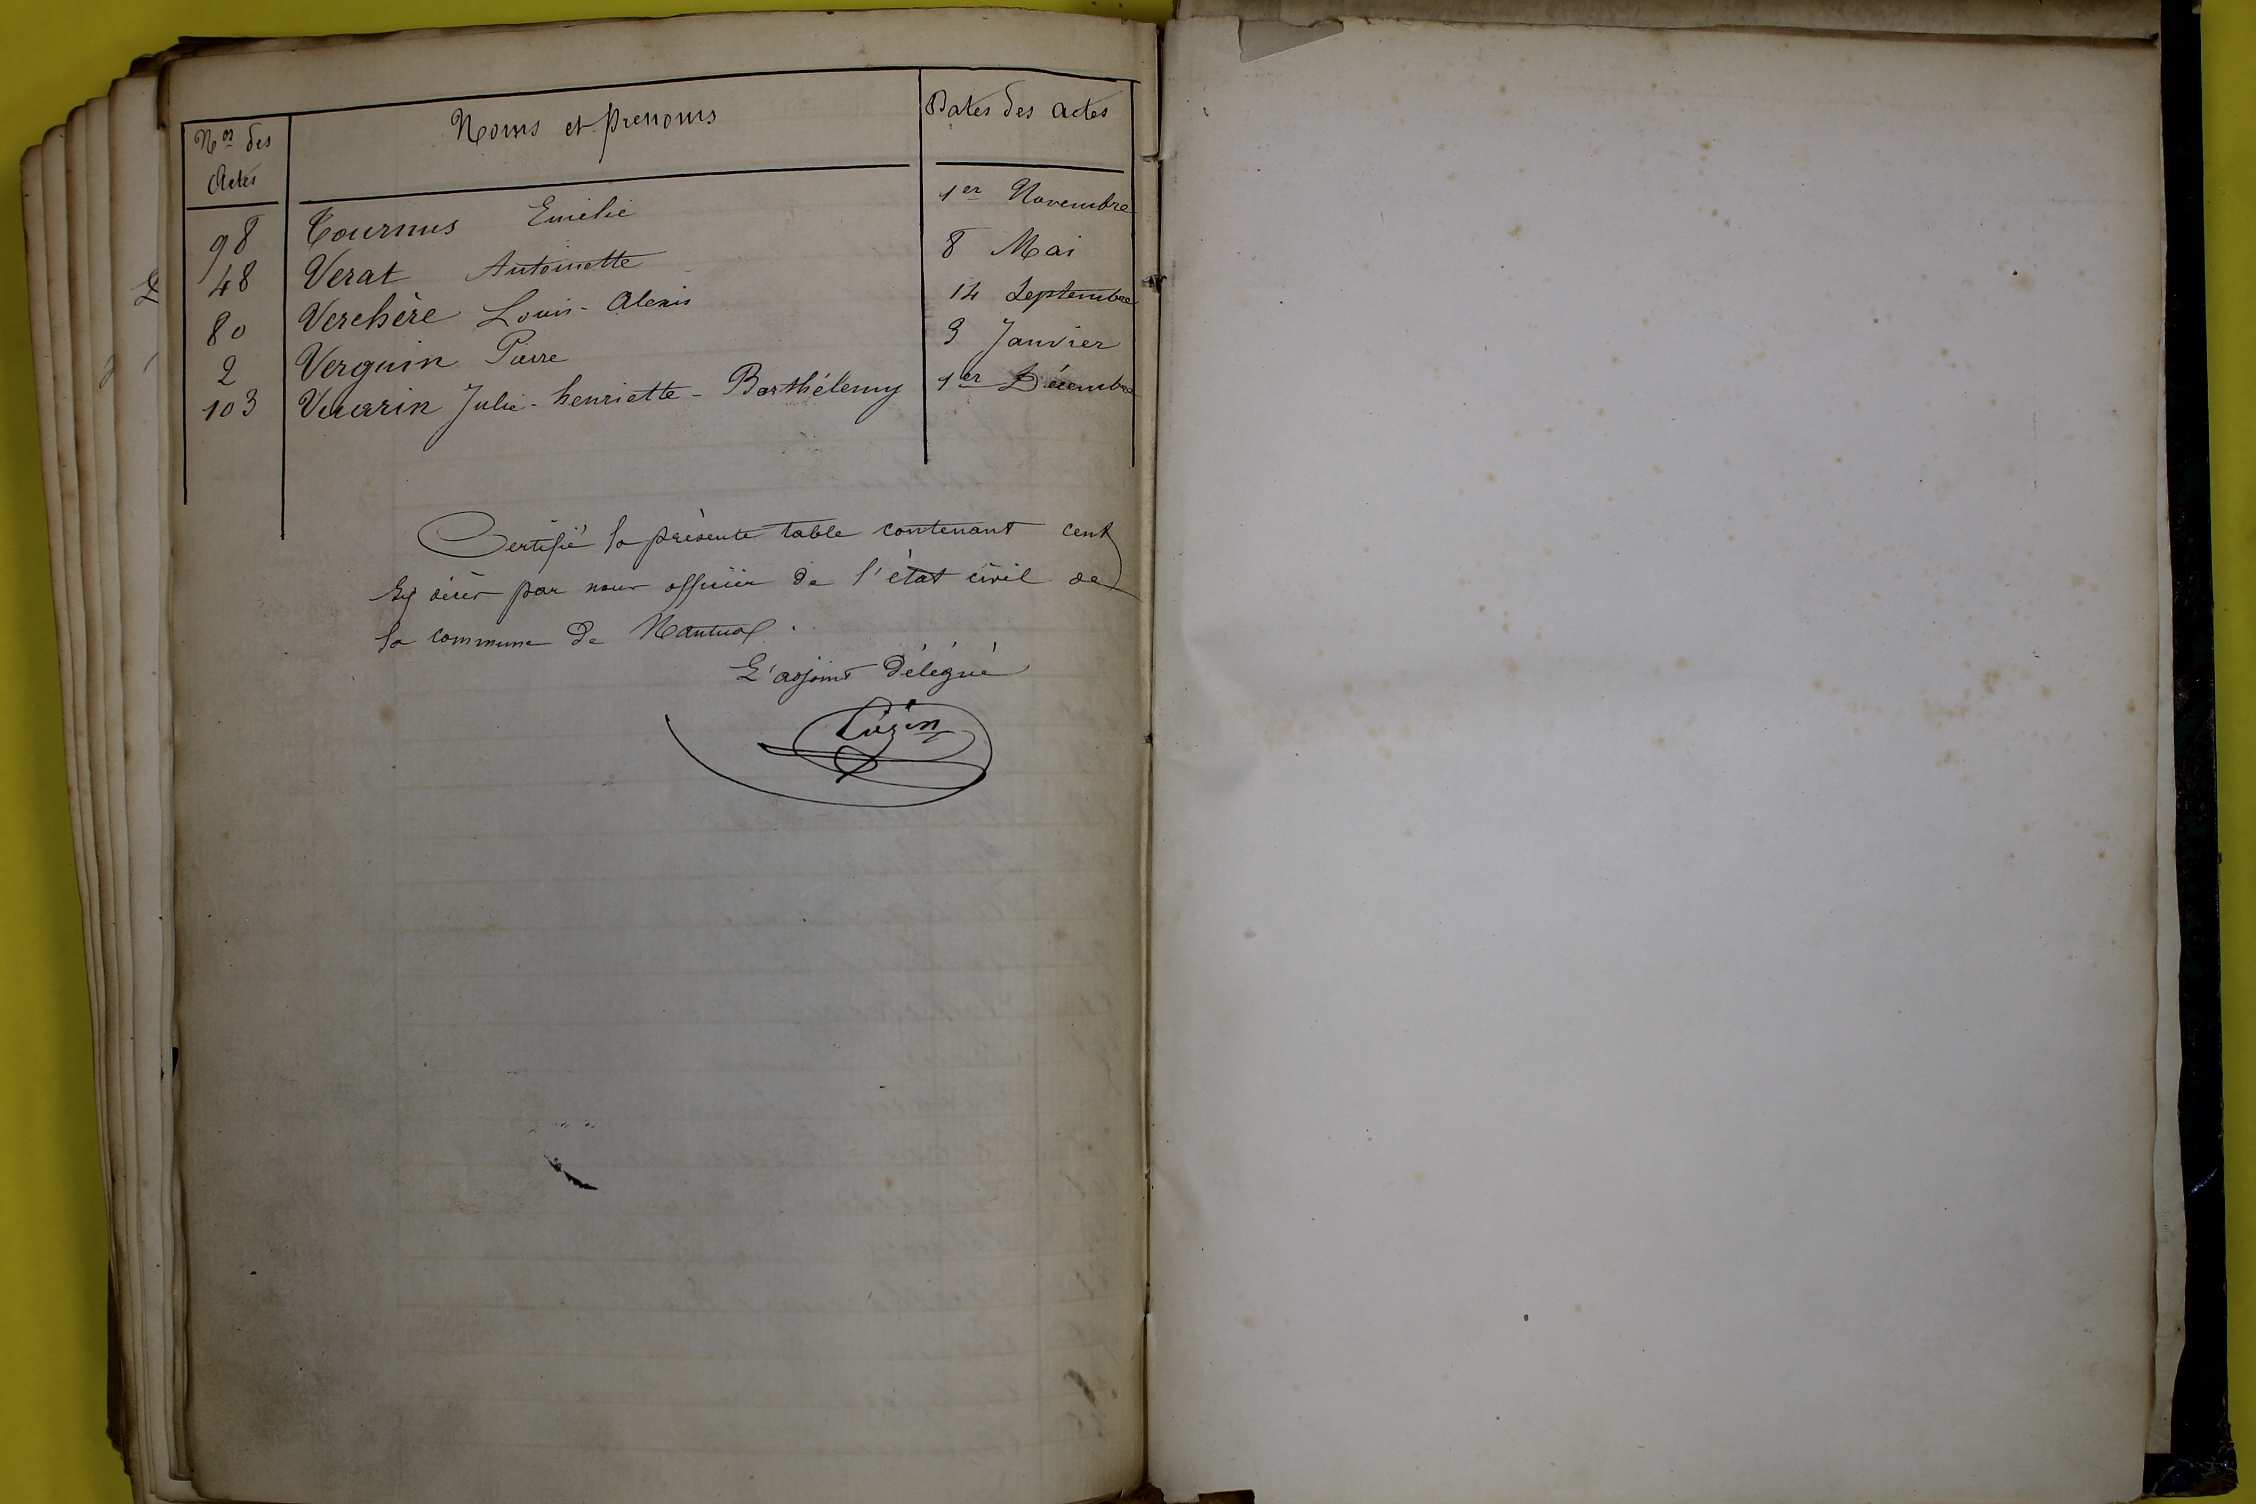 Nos des Actes | Noms et prenoms | Dates des actes
98 | Tournus Emélie | 1er Novembre
48 | Verat Antoinette | 8 Mai
80 | Verchère Louis-Alexis | 14 Septembre
2 | Verguin Pierre | 3 Janvier
103 | Vuarin Julie-henriette-Barthélemy | 1er Décembre
Certifié la présente table contenant cent
six décès par nous officier de l'état civil de
la commune de Nantua.
L'adjoint délégué